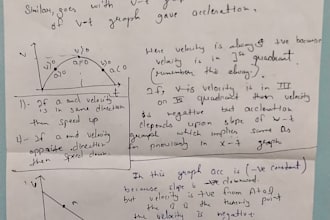 Similarly goes with v-t graph
of v-t graph gave acceleration.
v
v>0
a>0
a=0
v>0
a<0
t
Here velocity is always +ve because
velocity is in Ist quadrant
(remember this always).
If, v-is velocity is in III
or IV quadrant then velocity
is negative but acceleration
depends upon slope of v-t
graph which implies same as
in previously in x-t graph
1)- If a and velocity
is in same direction
then speed up
2)- If a and velocity
opposite direction
then speed down
In this graph acc is (-ve constant)
because slope is -ve downward.
but velocity is +ve from A to B,
the B is the turning point
the velocity is negative
v